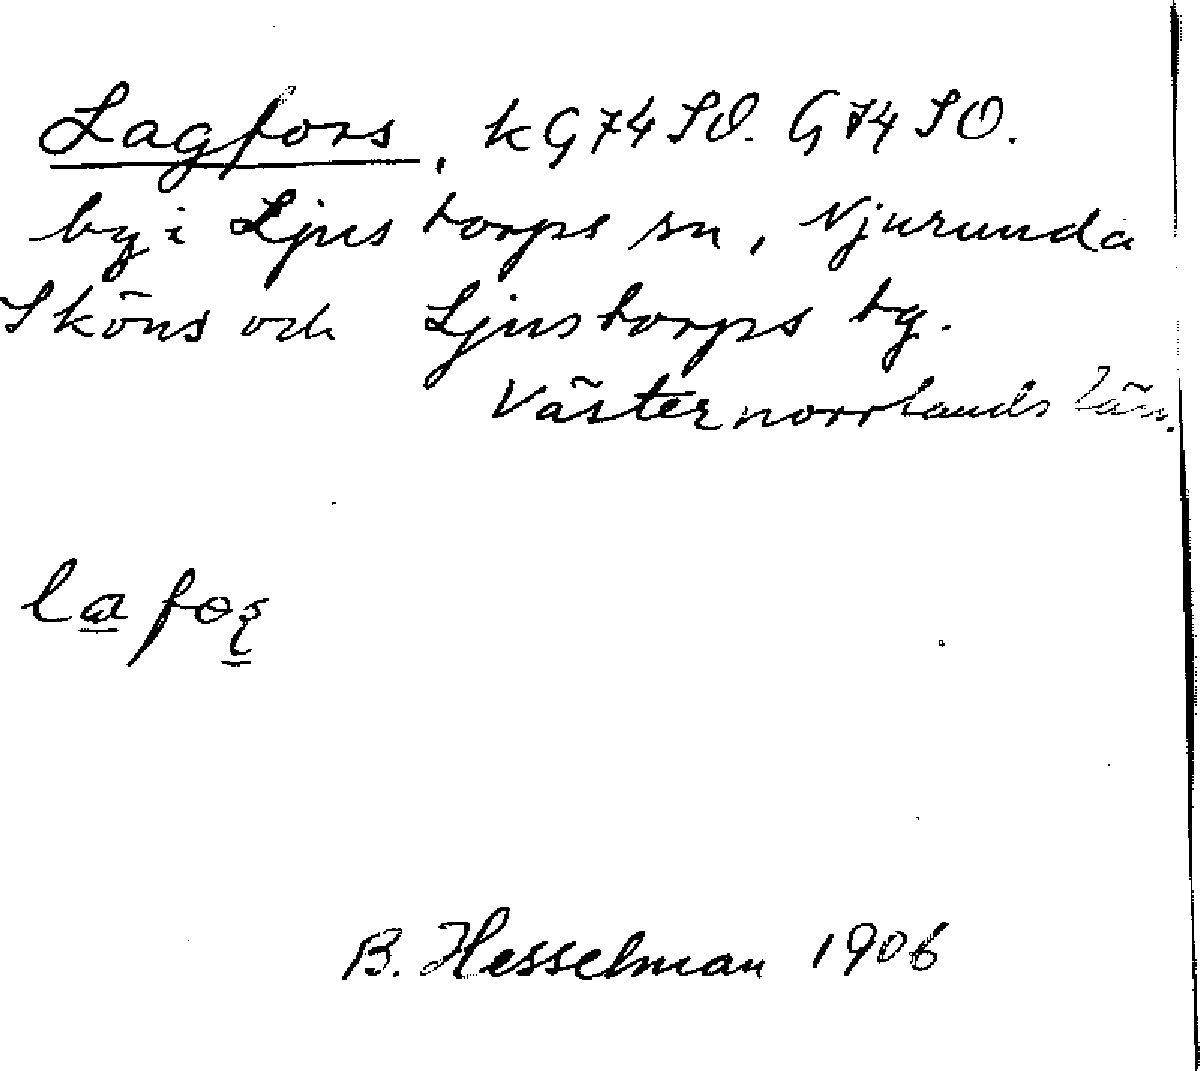 Lagfors, kG74SO. G74SO.
by i Ljustorps sn, Njurunda
Sköns och Ljustorps tg.
Västernorrlands län.
B. Hesselman 1906